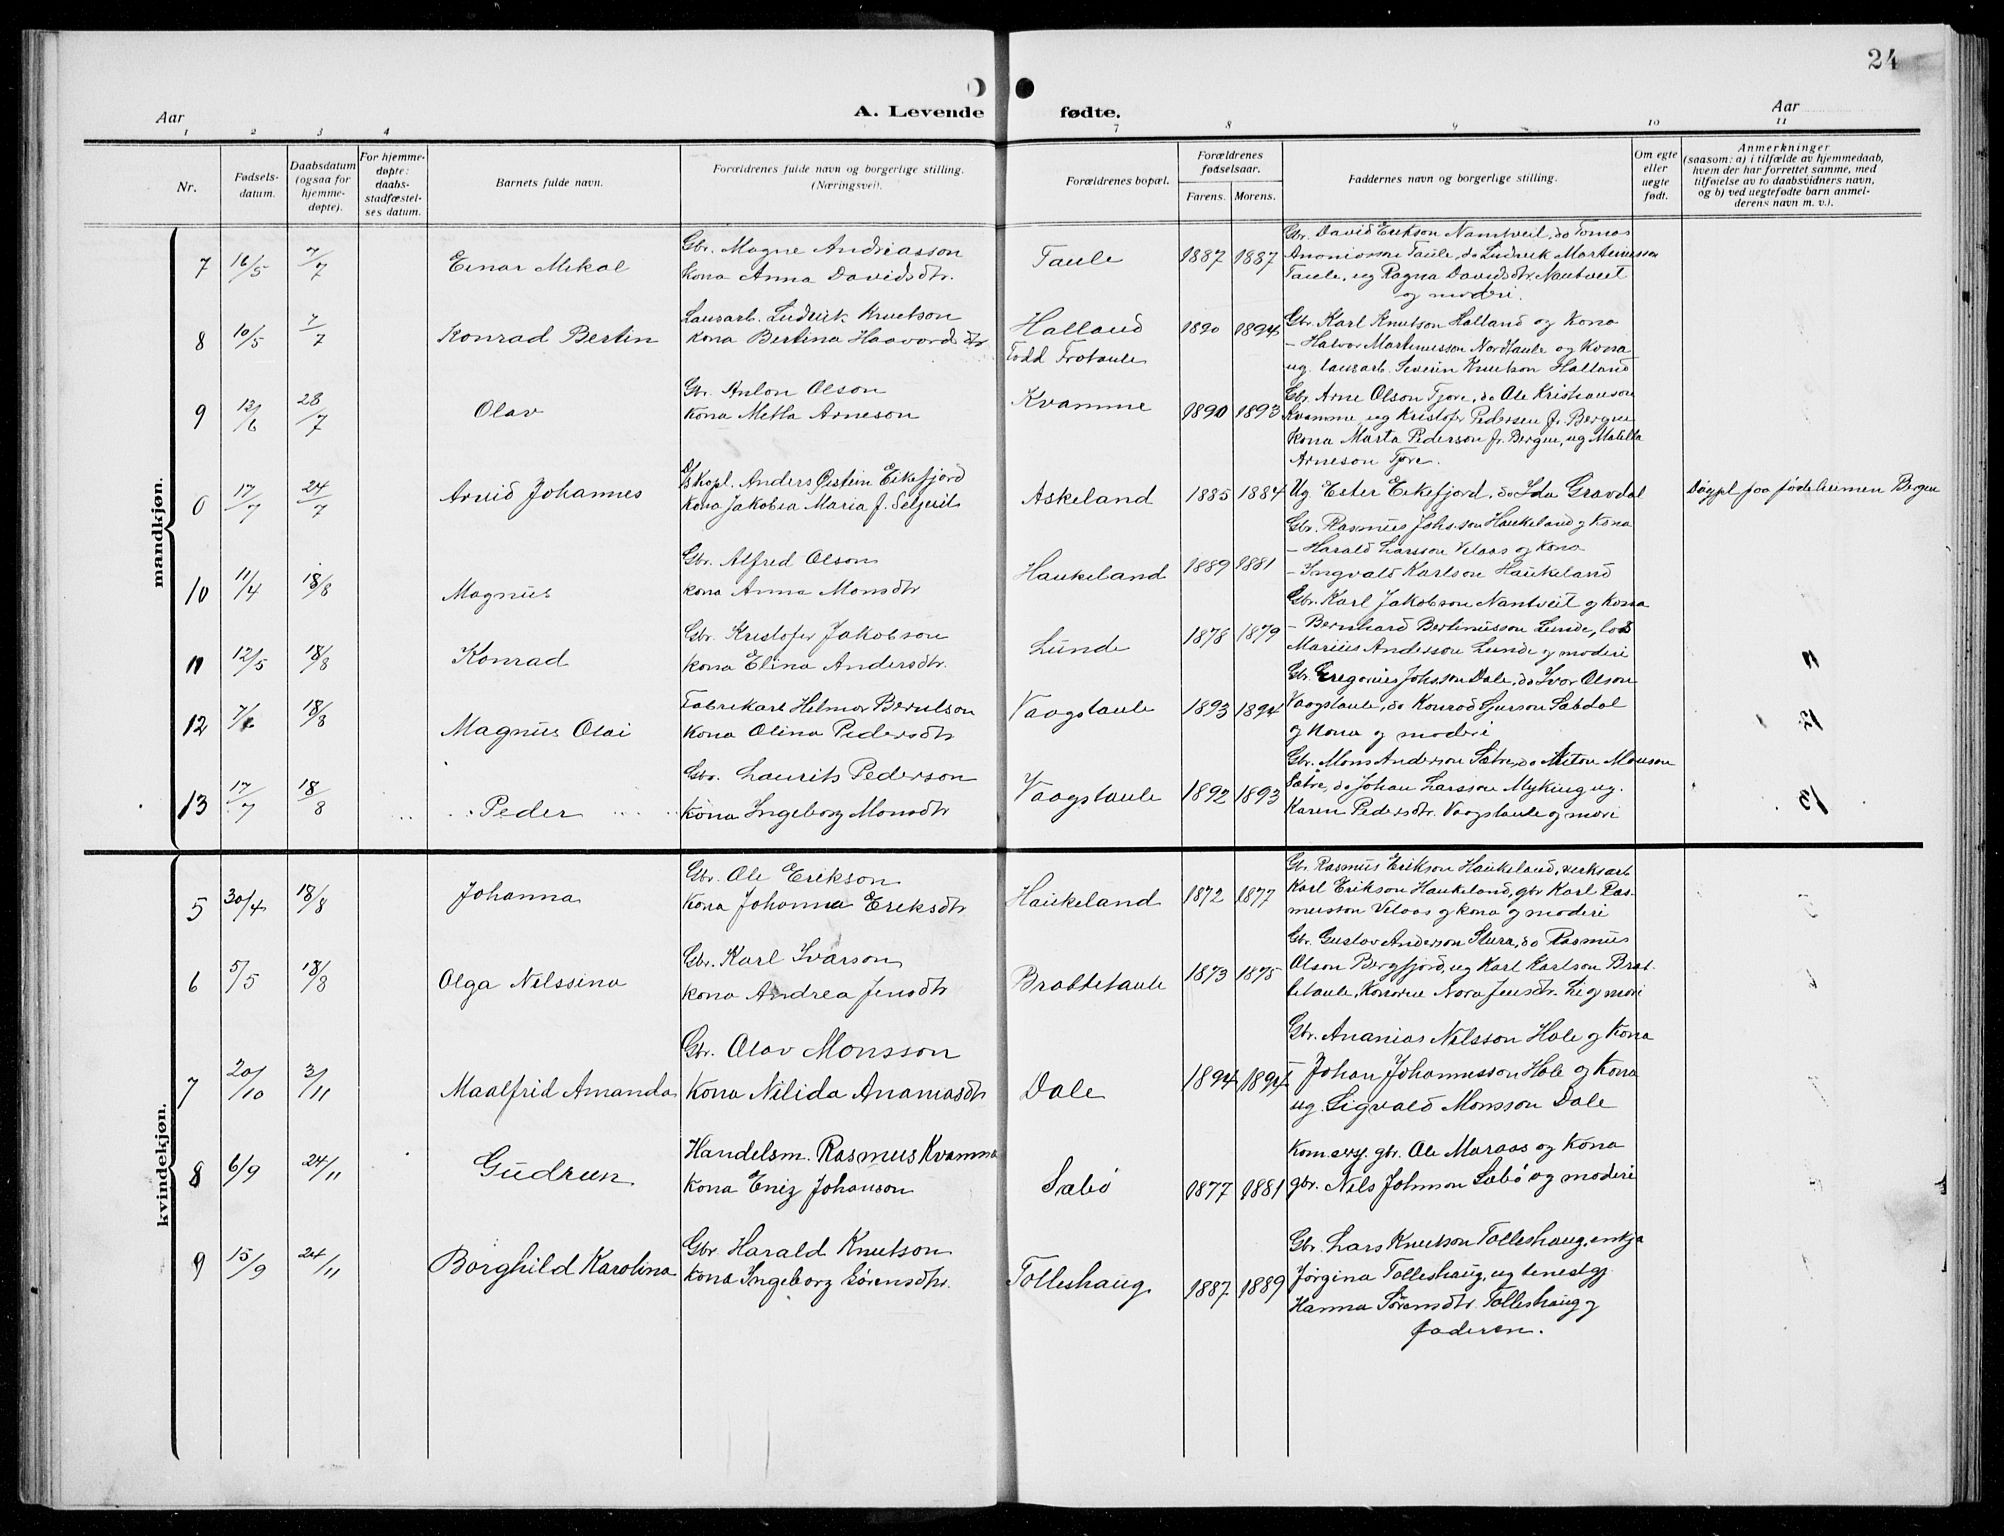 24
A. Levende fødte.
Aar
Aar
1 2 3 4 7 8 9 10 11
Nr.
Fødsels-
datum.
Daabsdatum
(ogsaa for
hjemme-
døpte).
For hjemme-
døpte:
daabs-
stadfæstel-
ses datum.
Barnets fulde navn.
Forældrenes fulde navn og borgerlige stilling.
(Næringsvei).
Forældrenes bopæl.
Forældrenes
fødselsaar.
Farens. Morens.
Faddernes navn og borgerlige stilling.
Om egte
eller
uegte
født.
Anmerkninger
(saasom: a) i tilfælde av hjemmedaab,
hvem der har forrettet samme, med
tilføielse av to daabsvidners navn,
og b) ved uegtefødte barn anmel-
derens navn m. v.).
mandkjøn.
7 16/5 7/7 Einar Mikal
Gbr. Magne Andreasson
Kona Anna Davidsdtr.
Taule 1887 1887
Gbr. David Erikson Nantveit, do Tomas
Ananiasson Taule, do Ludvik Martinusson
Taule, ug Ragna Davidsdtr. Nantveit
og moderi.
8 10/5 7/7 Konrad Bertin
Lausarb. Ludvik Knutson
Kona Bertina Haavardsdtr
Halland
Todd Frotaule
1890 1894
Gbr. Karl Knutson Halland og Kona
- Halvor Martinusson Nordtaule og Kona
ug. lausarb. Severin Knutson Halland
9 12/6 28/7 Olav
Gbr. Anton Olson
Kona Metta Arneson
Kvamme 1890 1893
Gbr. Arne Olson Tjore, do Ole Kristianson
Kvamme, ug Kristofer Pedersen fr. Bergen
Kona Marta Pederson fr. Bergen, ug Matilda
Arneson Tjore.
0 17/7 24/7 Arvid Johannes
D/Skapt. Anders Øistein Eikefjord
Kona Jakobia Maria f. Seljeset
Askeland 1885 1884
Ug Ester Eikefjord, do Ida Gravdal
Døypt paa fødeheimen Bergen
10 11/4 18/8 Magnus
Gbr. Alfred Olson
kona Anna Monsdtr
Haukeland 1889 1881
Gbr. Rasmus Johsson Haukeland og Kona
- Harald Larsson Velaas og Kona
- Ingvald Karlson Haukeland
11 12/5 18/8 Konrad
Gbr. Kristofer Jakobson
kona Elina Andersdtr.
Lunde 1878 1879
Gbr. Karl Jakobson Nantveit og Kona
- Bernhard Bertinusson Lunde, los
Marius Anderson Lunde og moderi
12 18/8 Magnus Olai
Fabrikarb Helmer Berntson
Kona Olina Pedersdtr
Vaagstaule 1893 1894
Gbr. Gregorius Johsson Dale, do Ivar Olson
Vaagstaule, do Konrad Gurson Sabdal
og Kona og moderi
13 17/7 18/8 Peder
Gbr. Laurits Pederson
Kona Ingeborg Monsdtr
Vaagstaule 1892 1893
Gbr. Mons Anderson Sætre, do Anton Monson
Sætre, do Johan Larsson Myking ug.
Karen Pedersdtr. Vaagstaule og mori
kvindekjøn.
5 30/4 18/8 Johanna
Gbr. Ole Erikson
Kona Johanna Eriksdtr
Haukeland 1872 1877
Gbr. Rasmus Erikson Haukeland, verksarb
Karl Erikson Haukeland, gbr Karl Ras-
musson Velaas og kona og moderi
6 5/5 18/8 Olga Nilssina
Gbr. Karl Ivarson
kona Andrea Jensdtr
Brattetaule 1873 1875
Gbr. Gustav Anderson Stura, do Rasmus
Olson Bergfjord, ug Karl Karlson Brat-
tetaule, Konorna Nora Jensdtr. Li og mori
7 20/10 3/11 Maalfrid Amanda
Gbr. Olav Monsson
Kona Nilida Ananiasdtr
Dale 1894 1894
Gbr. Ananias Nilsson Hole og Kona
- Johan Johannesson Hole og Kona
ug. Sigvald Monsson Dale
8 6/9 24/11 Gudrun
Handelsm. Rasmus Kvamme
Kona Eniz Johanson
Sæbø 1877 1881
Kom.erg. gbr. Ole Maraas og Kona
gbr. Nils Johnson Sæbø og moderi
9 15/9 24/11 Borghild Karolina
Gbr Harald Knutson
Kona Ingeborg Sørensdtr.
Tolleshaug 1887 1889
Gbr. Lars Knutson Tolleshaug, enkja
Jørgina Tolleshaug, ug tenestgj.
Hanna Sørensdtr. Tolleshaug og
faderen.